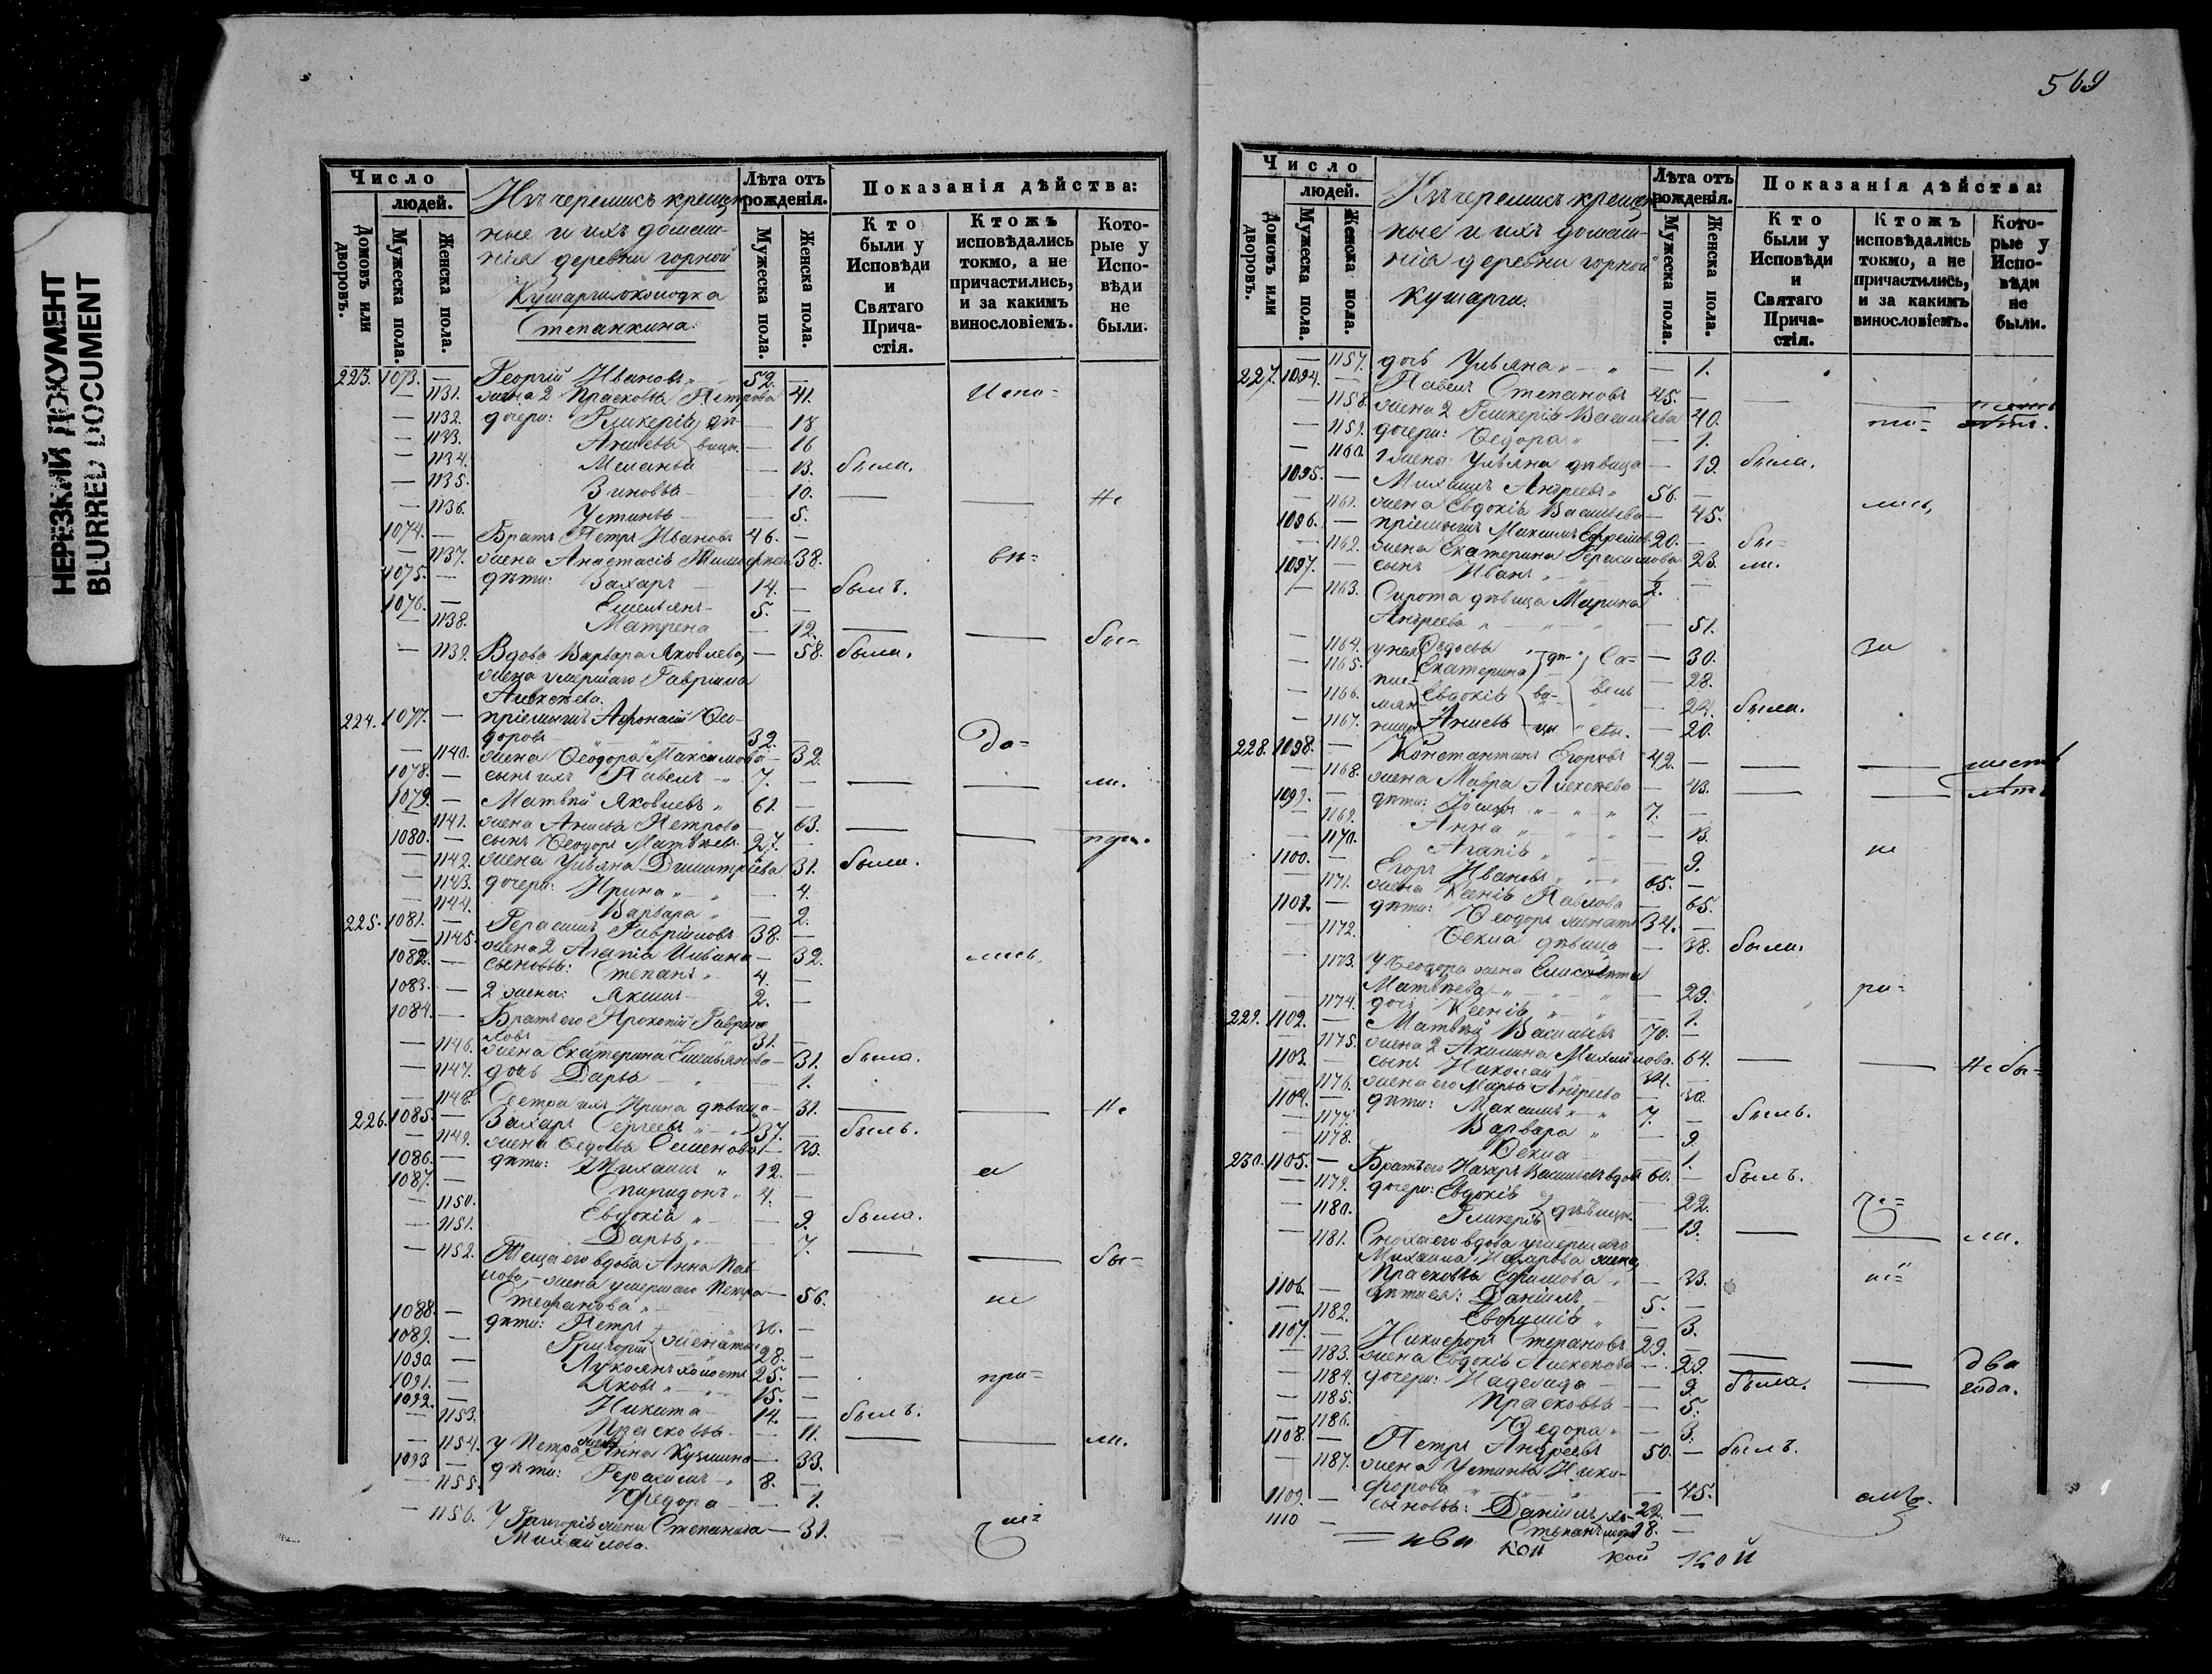 НЕРЕЗКИЙ ДОКУМЕНТ
BLURRED DOCUMENT
Число
людей.
Домовъ или дворовъ.
Мужеска пола.
Женска пола.
Изъ черемисъ крещен
ные и ихъ домаш-
нія деревни горной
Кушарги
Степанкина.
Лѣта отъ рожденія.
Мужеска пола.
Женска пола.
Показанія дѣйства:
Кто были у Исповѣди и Святаго Прича-стія.
Ктожъ исповѣдались токмо, а не причастились, и за какимъ винословіемъ.
Кото-рые у Испо-вѣди не были.
223. 1073. — Георгій Ивановъ 52. —
— 1131. жена 2 Прасковья Петрова 41. Испо-
— 1132. дочери: Гликерія дѣ- — 18
— 1133. Анисья вицы. — 16
— 1134. Меланья — 13. была.
— 1135. Зиновья — 10. — — Не
— 1136. Устинья — 5.
1074. — Братъ Петръ Ивановъ 46. —
— 1137. жена Анастасія 38. вѣ-
1075. — дѣти: Захаръ 14. — былъ.
1076. — Емельянъ 5. —
— 1138. Матрена — 12. — — бы-
— 1139. Вдова Варвара Яковлева, — 58. была.
жена умершаго Гавріила
Алексѣева.
224. 1077. — пріемышъ Афонасій Ѳео-
доровъ 32. — да-
— 1140. жена Ѳеодора Максимова — 32.
1078. — сынъ ихъ Павелъ 7. — — — ли.
1079. — Матвѣй Яковлевъ 61. —
— 1141. жена Анисья Петрова 63. — —
1080. — сынъ Ѳеодоръ Матвѣевъ 27. —
— 1142. жена Ульяна Димитріева 31. была.
— 1143. дочери: Ирина — 4.
— 1144. Варвара — 2.
225. 1081. — Герасимъ Гавріиловъ 38. —
— 1145. жена 2 Агапія — 32. лись.
1082. — сыновья: Степанъ 4. —
1083. — 2 жены: Якимъ 2. —
1084. — Братъ его Прокопій Гаврии
ловъ 31. —
— 1146. жена Екатерина Емельянова — 31. была.
— 1147. дочь Дарья — 1.
— 1148. Сестра ихъ Ирина дѣвица — 31. — — Не
226. 1085. — Захаръ Сергеевъ 37. — былъ.
— 1149. жена Ѳедосья Семенова — 33.
1086. — дѣти: Михаилъ 12. — а
1087. — Спиридонъ 4. —
— 1150. Евдокія — 9. была.
— 1151. Дарья — 7. —
— 1152. Теща его вдова Анна Пав — бы-
лова, жена умершаго Петра — 56.
Стефанова не
1088. — дѣти: Петръ —
1089. — Григорій женаты 28. —
1090. — Лукоянъ холостъ 25. — при-
1091. — Яковъ 15. —
1092. — Никита 14. — былъ.
— 1153. Прасковья — 11. — — ли.
— 1154. У Петра жена Анна Кузмина — 33.
1093 — дѣти: Герасимъ 8. —
— 1155. Ѳедора — 1.
— 1156. У Григорія жена Степанида — 31.
Михайлова.
569
Число
людей.
Домовъ или дворовъ.
Мужеска пола.
Женска пола.
Изъ черемисъ крещен
ные и ихъ домаш-
нія деревни горной
Кушарги.
Лѣта отъ рожденія.
Мужеска пола.
Женска пола.
Показанія дѣйства:
Кто были у Исповѣди и Святаго Прича-стія.
Ктожъ исповѣдались токмо, а не причастились, и за какимъ винословіемъ.
Кото-рые у Испо-вѣди не были.
— 1157. дочь Ульяна — 1.
227. 1094. — Павелъ Степановъ 45. — — —
— 1158. жена 2 Гликерія Васильева 40.
— 1159. дочери: Ѳедора — 1.
— 1160. 1 жены: Ульяна дѣвица — 19. была.
1095. — Михаилъ Андреевъ 56. —
— 1161. жена Евдокія Васильева — 45. лись,
1096. — пріемышъ Максимъ Ефремов. 20. — бы-
— 1162. жена Екатерина Герасимова 23. ли.
1097. — сынъ Иванъ —
— 1163. Сирота дѣвица Марина
Андреева — 51.
— 1164. у нея Ѳедосья — 30. за
— 1165. пле- Екатерина дѣ- Са- — 28.
— 1166. мян- Евдокія ви- вель — 22. была.
— 1167. ницы Анисья цы евы. — 20.
228. 1098. — Константинъ Егоровъ 42. — — —
— 1168. жена Мавра Алексѣева — 43.
1099. — дѣти: 7. — — — лѣтъ
— 1169. Анна — 13.
— 1170. Агапія — 9. не
1100. — Егоръ Ивановъ 65. —
— 1171. жена Ксенія Павлова — 65.
1101. — дѣти: Ѳеодоръ женатъ 34. —
— 1172. Ѳекла дѣвица — 38. была.
— 1173. У Ѳеодора жена Елисавета
Матвѣева — 29. ра-
— 1174. дочь Ксенія — 1.
229. 1102. — Матвѣй Васильевъ 70. —
— 1175. жена 2 Акилина Михайлова. 64. — — Не бы-
1103. — сынъ Николай —
— 1176. жена его Марья Андреева — 30.
1104. — дѣти: Максимъ 7. — былъ.
— 1177. Варвара — 9.
— 1178. Ѳекла — 1.
230. 1105. — Братъ его Назаръ Васильевъ вдов 60. — былъ.
— 1179. дочери: Евдокія — 22.
— 1180. Гликерія дѣвицы. — 19. — —
— 1181. Сноха его вдова умершаго ли.
Михаила Назарова жена
Прасковья Ефимова — 33.
1106. — дѣти ея: Даніилъ 5. —
— 1182. Евфимія — 3.
1107. — Никифоръ Степановъ 29. —
— 1183. жена Евдокія Алексѣева — 29. — — два
— 1184. дочери: Надежда — 9. была. — года.
— 1185. Прасковья — 5.
— 1186. Ѳедора — 3.
1108. — Петръ Андреевъ 50. — былъ.
— 1187. жена Устинья Ники-
форова — 45.
1109. — сыновья: Даніилъ хо- 22. —
1110 — Степанъ 18. —